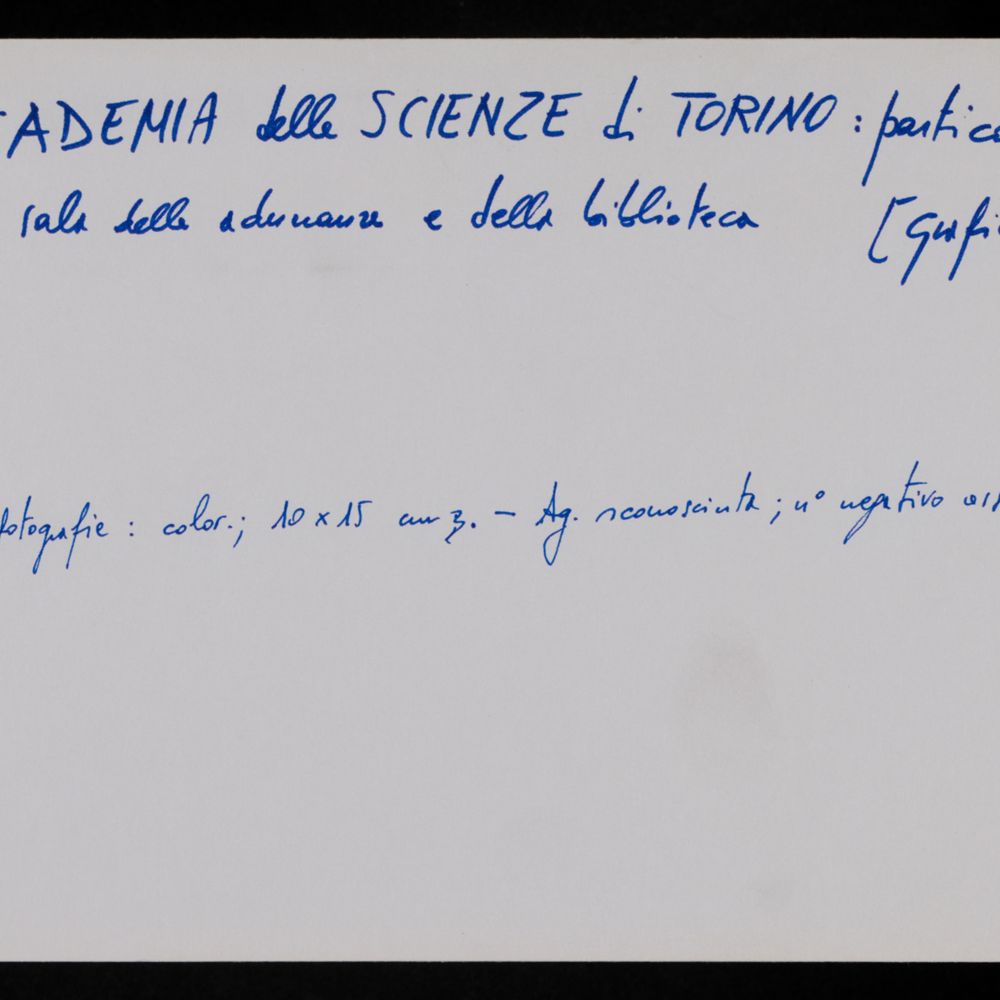 CADEMIA delle SCIENZE di TORINO : partico
sala delle adunanze e della biblioteca [Grafi
fotografie : color.; 10 x 15 cm — Ag. sconosciuta ; n° negativo ass